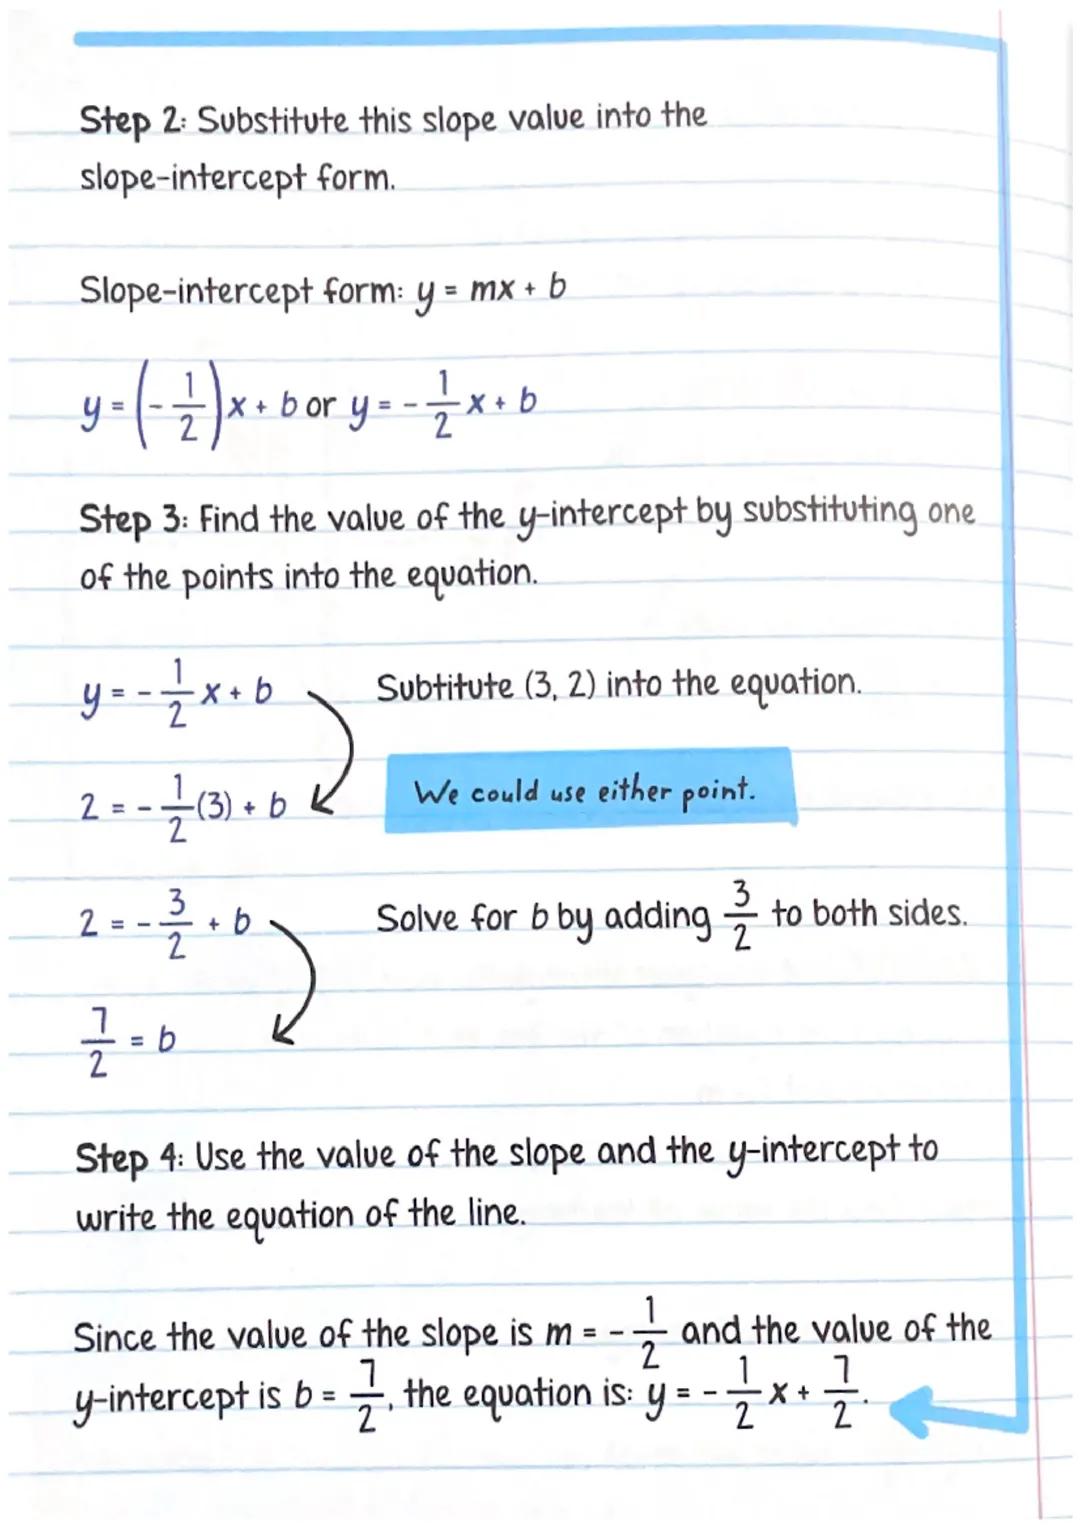 Step 2: Substitute this slope value into the
slope-intercept form.
Slope-intercept form: y = mx + b
y = (-1/2)x + b or y = -1/2 x + b
Step 3: Find the value of the y-intercept by substituting one
of the points into the equation.
y = -1/2 x + b Subtitute (3, 2) into the equation.
2 = -1/2 (3) + b We could use either point.
2 = -3/2 + b Solve for b by adding 3/2 to both sides.
7/2 = b
Step 4: Use the value of the slope and the y-intercept to
write the equation of the line.
Since the value of the slope is m = -1/2 and the value of the
y-intercept is b = 7/2, the equation is: y = -1/2 x + 7/2.